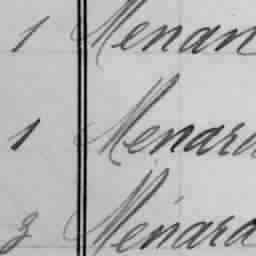 1 Menan
1 Menard
3 Menard